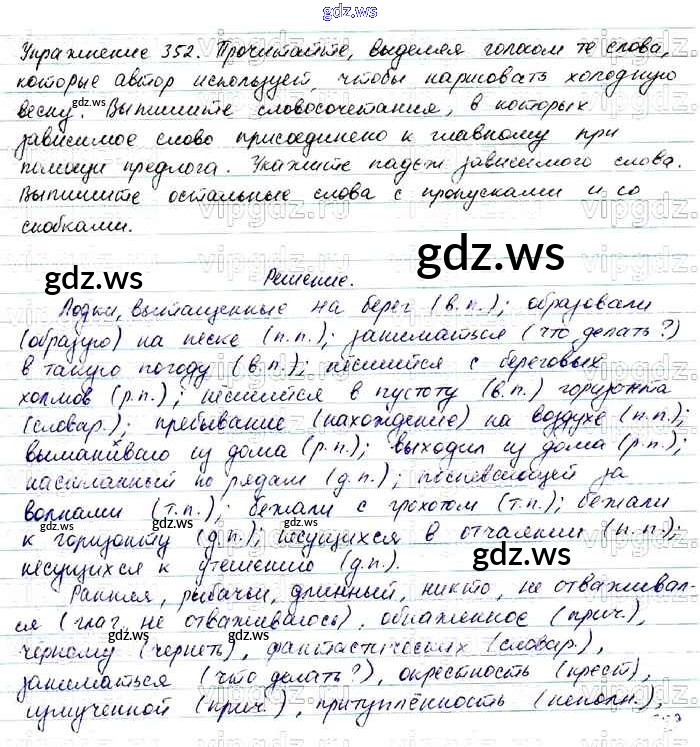 gdz.ws
Упражнение 352. Прочитайте, выделяя голосом те слова,
которые автор использует, чтобы нарисовать холодную
весну. Выпишите словосочетания, в которых
gdz.ws
зависимое слово присоединено к главному при
помощи предлога. Укажите падеж зависимого слова.
Выпишите остальные слова с пропусками и со
скобками.
gdz.ws
gdz.ws
Решение.
Лодки, вытащенные на берег (в.п.); образовали
(образую) на песке (п.п.); заниматься (что делать?)
в такую погоду (в.п.); несшийся с береговых
gdz.ws
холмов (р.п.); несшийся в пустоту (в.п.) горизонта
(словар.); пребывание (нахождение) на воздухе (п.п.);
выманивало из дома (р.п.); выходил из дома (р.п.);
насыпанный по рядам (д.п.); поспевающей за
волнами (т.п.); бежали с грохотом (т.п.); бежали
gdz.ws
к горизонту (д.п.); несущихся в отчаянии (п.п.);
несущихся к утешению (д.п.).
gdz.ws
Ранняя, рыбачьи, длинный, никто, не отваживал-
ся (глаг, не отваживалось), обнаженное (прич.),
gdz.ws
чёрному (чернеть), фантастических (словар.),
заниматься (что делать?), окрестность (крест),
измученной (прич.), притуплённость (неполн.),
gdz.ws